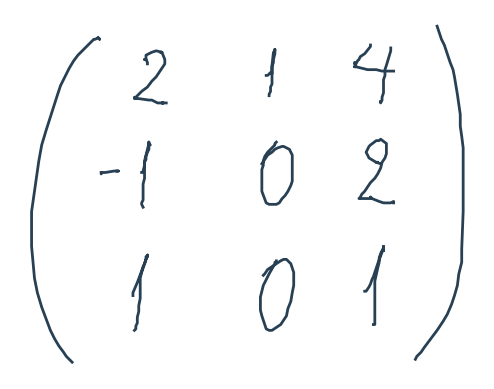 2 1 4
-1 0 2
1 0 1